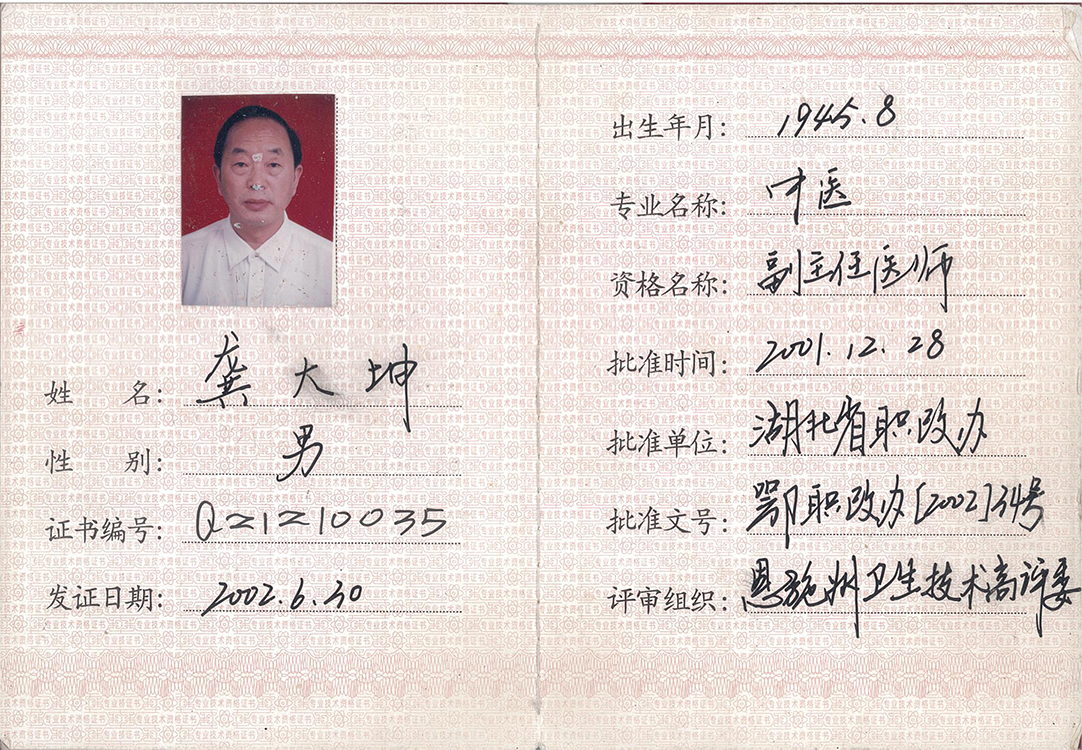 姓 名: 龚大坤
性 别: 男
证书编号: Q21210035
发证日期: 2002.6.30
出生年月: 1945.8
专业名称: 中医
资格名称: 副主任医师
批准时间: 2001.12.28
批准单位: 湖北省职改办
批准文号: 鄂职改办[2002]34号
评审组织: 恩施州卫生技术高评委